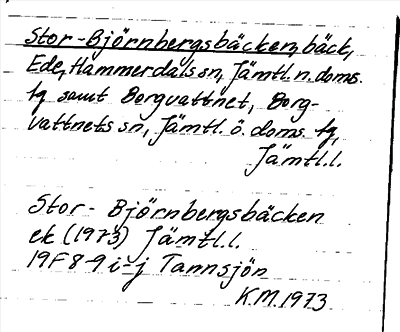 Stor-Björnbergsbäcken, bäck,
Ede, Hammerdals sn, Jämtl. n. doms.
tg samt Borgvattnet, Borg-
vattnets sn, Jämtl. ö. doms. tg,
Jämtl.l.
Stor- Björnbergsbäcken
ek (1973) Jämtl.l.
19F 8-9 i-j Tannsjön
K.M. 1973